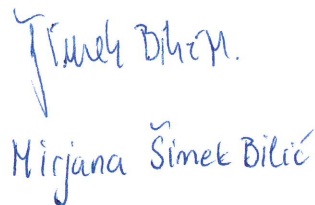 Šimek Bilić M.
Mirjana Šimek Bilić